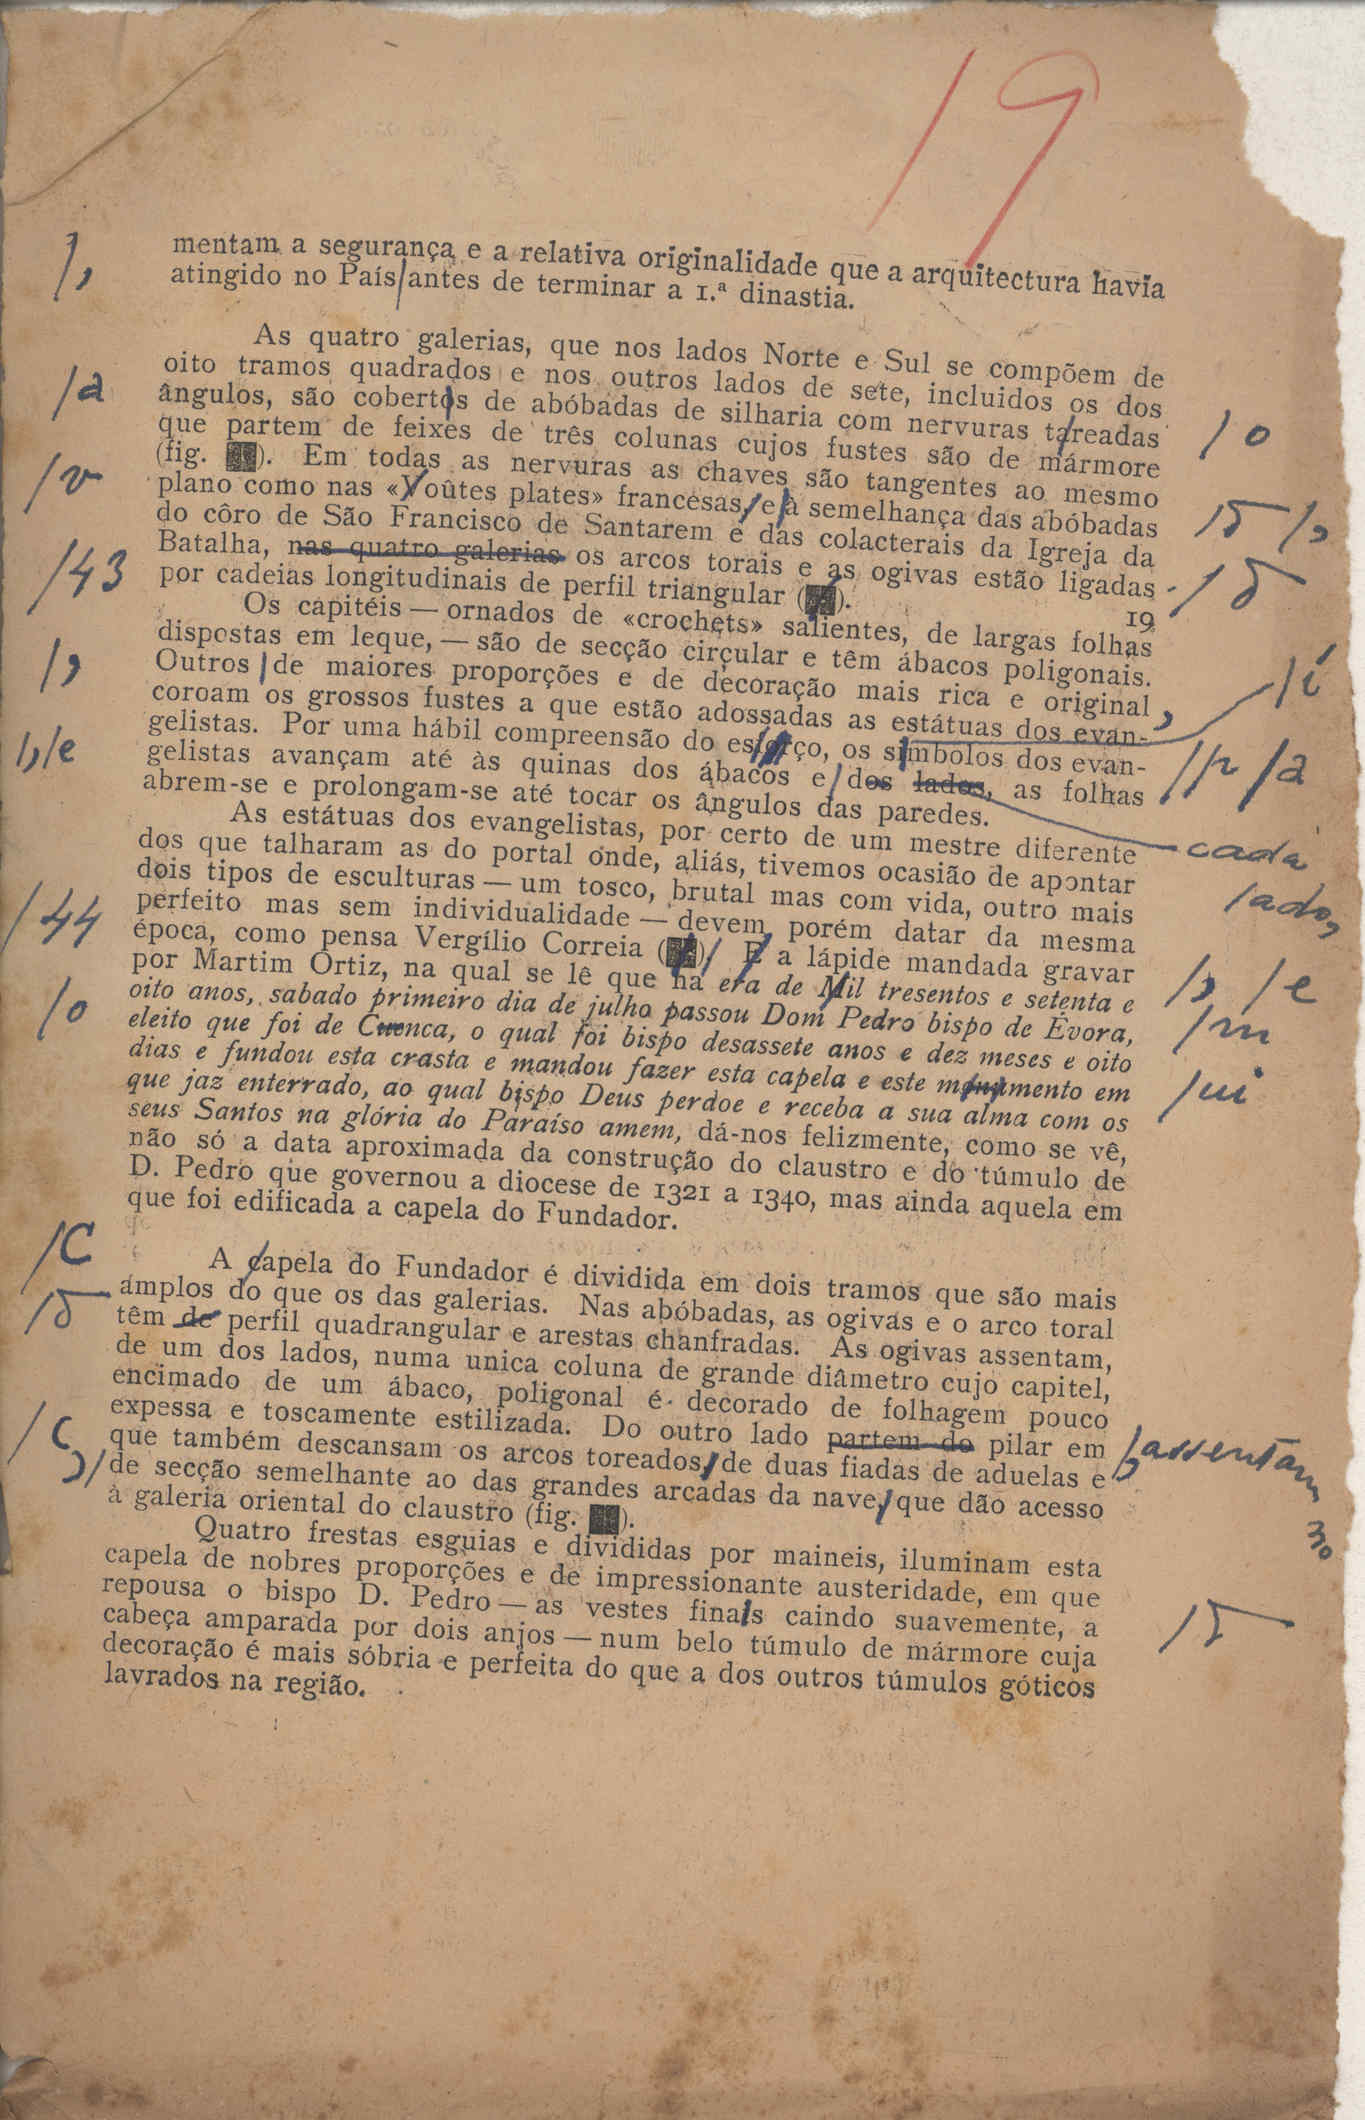 19
mentam a segurança e a relativa originalidade que a arquitectura havia
/, atingido no País/antes de terminar a 1.ª dinastia.
As quatro galerias, que nos lados Norte e Sul se compõem de
oito tramos quadrados e nos outros lados de sete, incluidos os dos
/a ângulos, são cobertos de abóbadas de silharia com nervuras tareadas /o
que partem de feixes de três colunas cujos fustes são de mármore
(fig. ██). Em todas as nervuras as chaves são tangentes ao mesmo
/v plano como nas «Voûtes plates» francesas, e à semelhança das abóbadas
do côro de São Francisco de Santarem e das colacterais da Igreja da /,
Batalha, nas quatro galerias os arcos torais e as ogivas estão ligadas
/43 por cadeias longitudinais de perfil triangular (██).
19
Os capitéis — ornados de «crochets» salientes, de largas folhas
dispostas em leque, — são de secção circular e têm ábacos poligonais.
/, Outros/de maiores proporções e de decoração mais rica e original, /i
coroam os grossos fustes a que estão adossadas as estátuas dos evan-
/,/e gelistas. Por uma hábil compreensão do esforço, os simbolos dos evan-
gelistas avançam até às quinas dos ábacos e/dos lados, as folhas /a
abrem-se e prolongam-se até tocar os ângulos das paredes.
As estátuas dos evangelistas, por certo de um mestre diferente cada
dos que talharam as do portal onde, aliás, tivemos ocasião de apontar lado,
dois tipos de esculturas — um tosco, brutal mas com vida, outro mais
/44 perfeito mas sem individualidade — devem, porém datar da mesma
época, como pensa Vergílio Correia (██)/ E a lápide mandada gravar /, /e
por Martim Ortiz, na qual se lê que na era de Mil tresentos e setenta e /m
/o oito anos, sabado primeiro dia de julho passou Dom Pedro bispo de Évora,
eleito que foi de Cuenca, o qual foi bispo desassete anos e dez meses e oito
dias e fundou esta crasta e mandou fazer esta capela e este monumento em /ui
que jaz enterrado, ao qual bispo Deus perdoe e receba a sua alma com os
seus Santos na glória do Paraíso amem, dá-nos felizmente, como se vê,
não só a data aproximada da construção do claustro e do túmulo de
D. Pedro que governou a diocese de 1321 a 1340, mas ainda aquela em
que foi edificada a capela do Fundador.
/C A capela do Fundador é dividida em dois tramos que são mais
ámplos do que os das galerias. Nas abóbadas, as ogivas e o arco toral
têm de perfil quadrangular e arestas chanfradas. As ogivas assentam,
de um dos lados, numa unica coluna de grande diâmetro cujo capitel,
encimado de um ábaco, poligonal é decorado de folhagem pouco
expessa e toscamente estilizada. Do outro lado partem do pilar em /assentam no
que também descansam os arcos toreados, de duas fiadas de aduelas e
,/ de secção semelhante ao das grandes arcadas da nave, que dão acesso
à galeria oriental do claustro (fig. ██).
Quatro frestas esguias e divididas por maineis, iluminam esta
capela de nobres proporções e de impressionante austeridade, em que
repousa o bispo D. Pedro — as vestes finais caindo suavemente, a
cabeça amparada por dois anjos — num belo túmulo de mármore cuja
decoração é mais sóbria e perfeita do que a dos outros túmulos góticos
lavrados na região.